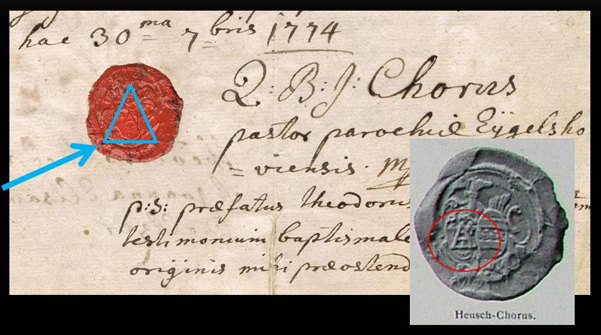 hac 30 ma 7 bris 1774
Q: B: J: Chorus
pastor parochiæ Eÿgelsho
= viensis.
p:s: præfatus theodorus
testimonium baptismale
originis mihi præostend
Heusch-Chorus.